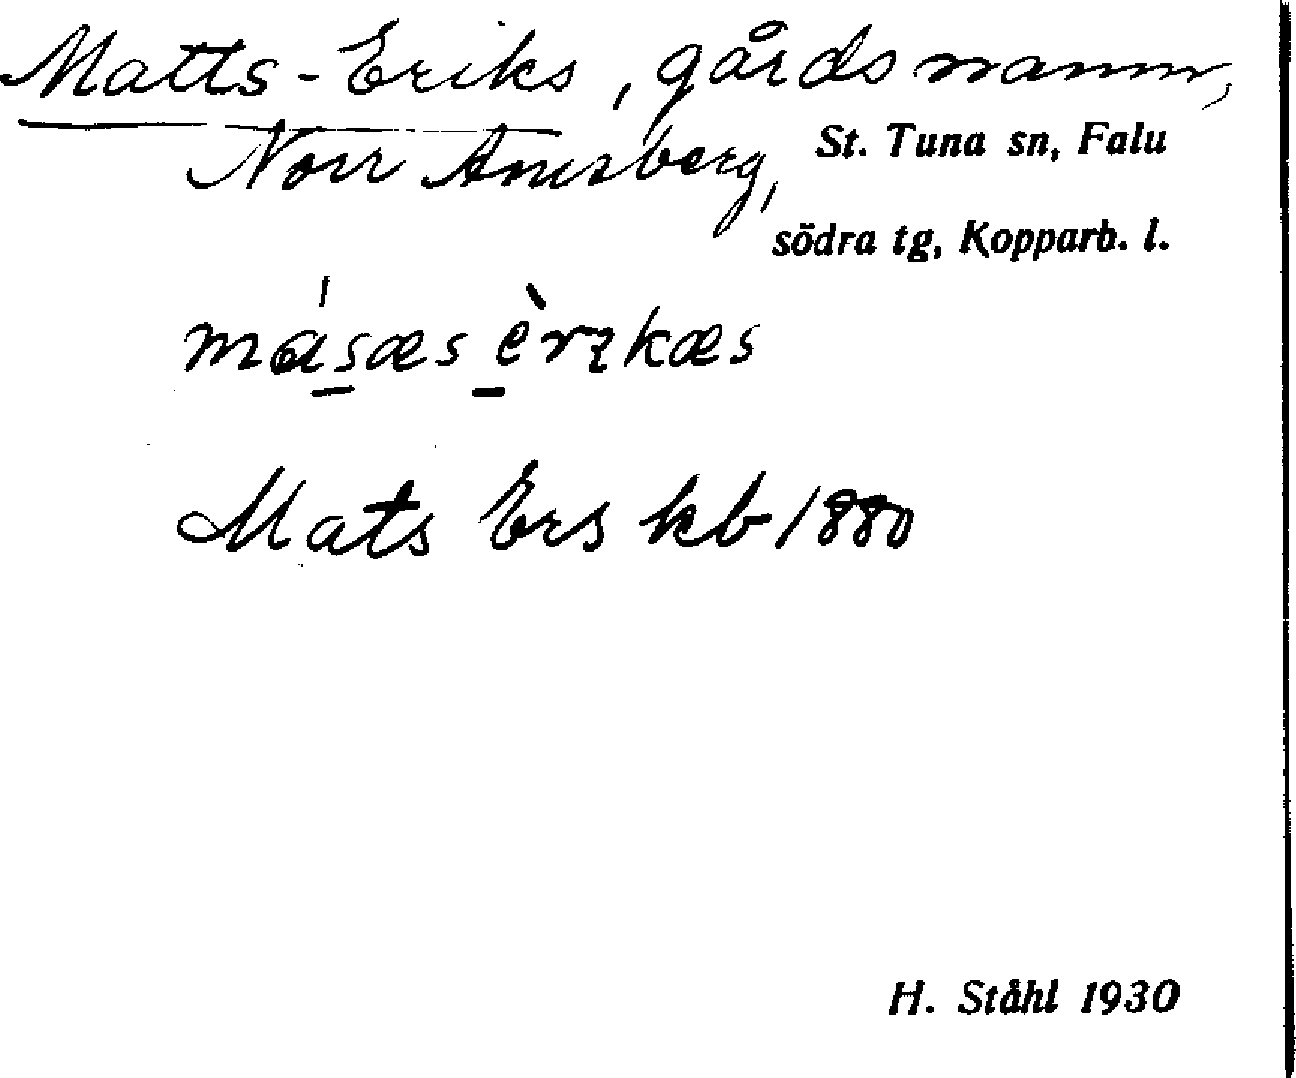 Matts-Eriks, gårdsnamn,
Norr Amsberg, St. Tuna sn, Falu
södra tg, Kopparb. l.
másæs èrɩkæs
Mats Ers kb 1880
H. Ståhl 1930